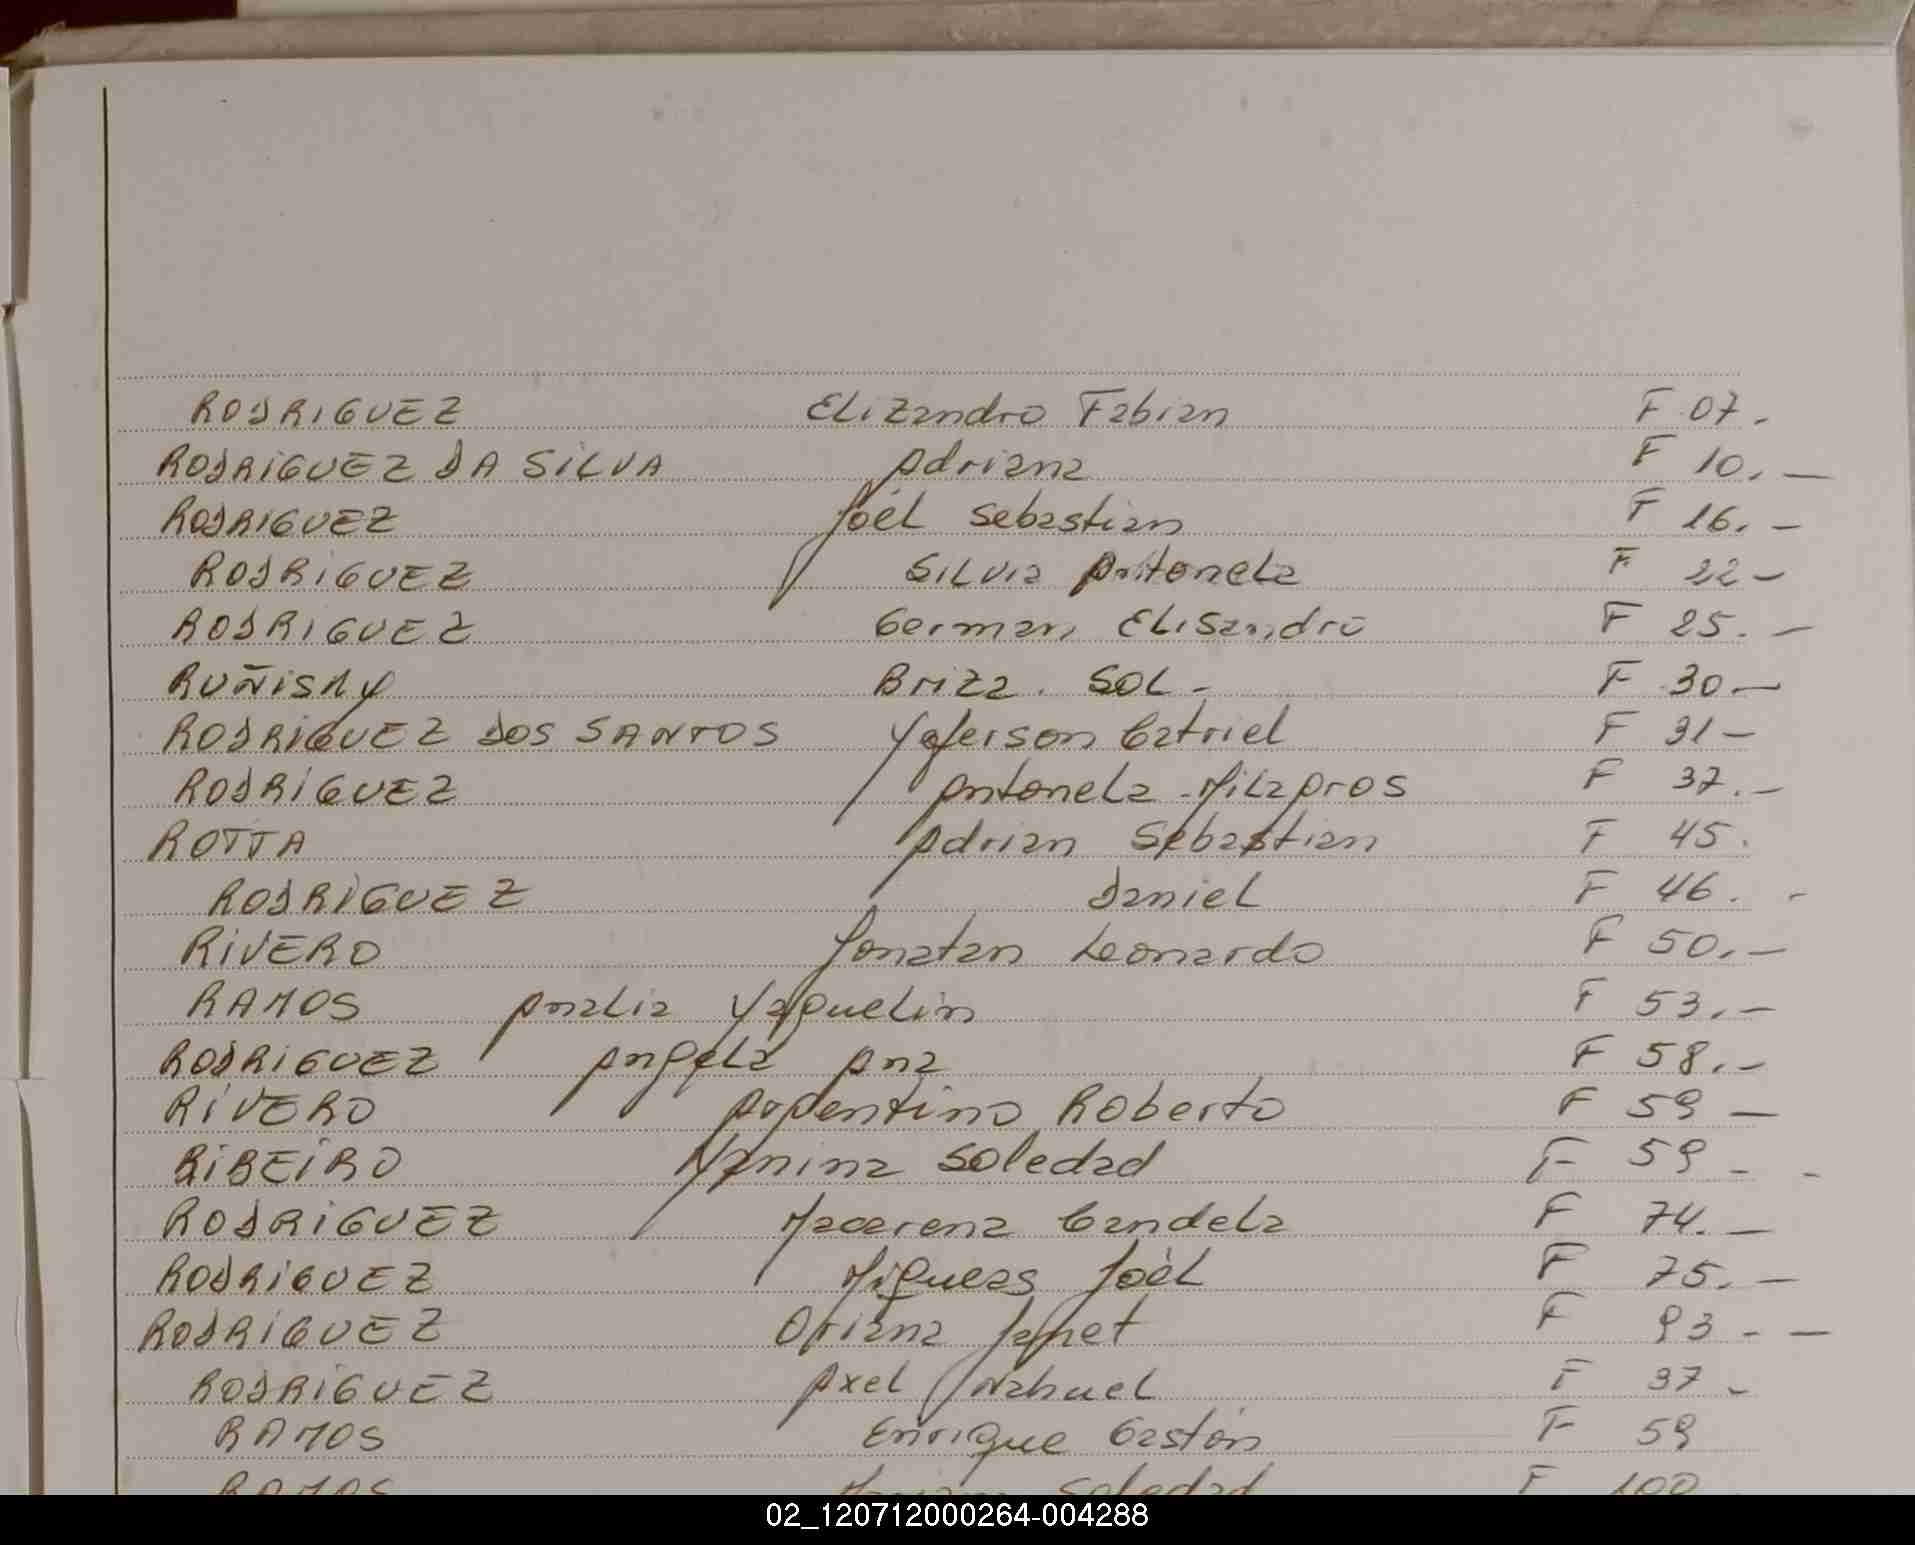 RODRIGUEZ Elizandro Fabian F 07.
RODRIGUEZ DA SILVA Adriana F 10. —
RODRIGUEZ Joél Sebastian F 16. —
RODRIGUEZ Silvia Antonela F 22 —
RODRIGUEZ German Elisandro F 25. —
RUÑISKY Briza. SOL - F 30 —
RODRIGUEZ DOS SANTOS Yeferson Gatriel F 31 —
RODRIGUEZ Antonela Milagros F 37. —
ROTTA Adrian Sebastian F 45.
RODRIGUEZ Daniel F 46. -
RIVERO Jonatan Leonardo F 50. —
RAMOS Analia Yaquelin F 53. —
RODRIGUEZ Angela Ana F 58. —
RIVERO Argentino Roberto F 59 —
RIBEIRO Yanina Soledad F 59 - -
RODRIGUEZ Macarena Candela F 74. —
RODRIGUEZ Migueas Joél F 75. —
RODRIGUEZ Oriana Janet F 93 - —
RODRIGUEZ Axel Nahuel F 37 -
RAMOS Enrique Gastón F 59
RAMOS Soledad F 100
02_120712000264-004288